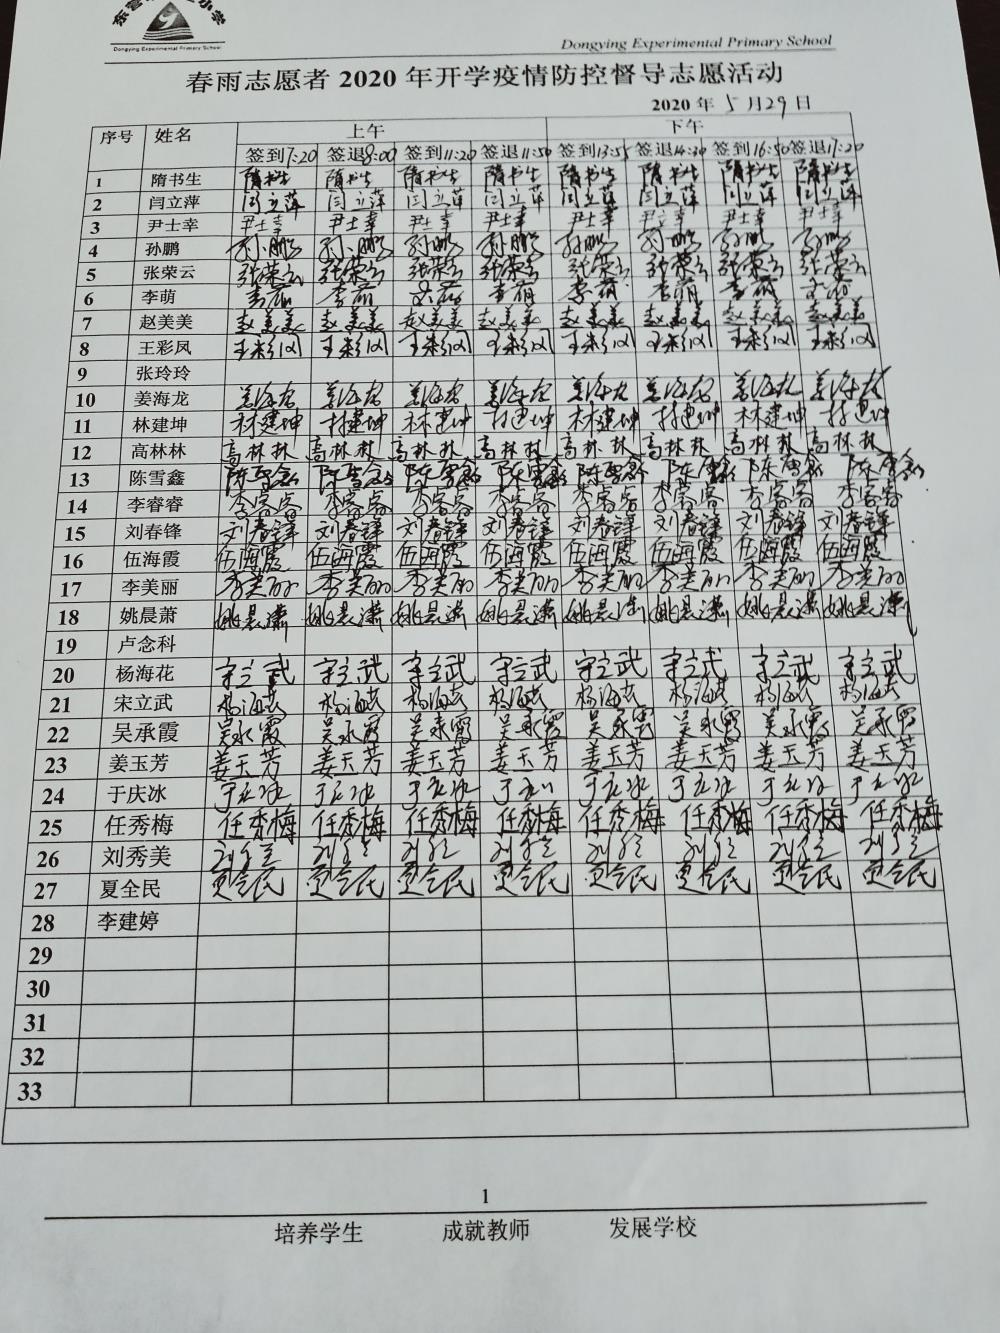 Dongying Experimental Primary School
Dongying Experimental Primary School
春雨志愿者 2020 年开学疫情防控督导志愿活动
2020 年 5 月 29 日
序号 姓名 上午 下午
签到7:20 签退8:00 签到11:20 签退11:50 签到13:55 签退14:30 签到16:50 签退17:20
1 隋书生 隋书生 隋书生 隋书生 隋书生 隋书生 隋书生 隋书生 隋书生
2 闫立萍 闫立萍 闫立萍 闫立萍 闫立萍 闫立萍 闫立萍 闫立萍 闫立萍
3 尹士幸 尹士幸 尹士幸 尹士幸 尹士幸 尹士幸 尹士幸 尹士幸 尹士幸
4 孙鹏 孙鹏 孙鹏 孙鹏 孙鹏 孙鹏 孙鹏 孙鹏 孙鹏
5 张荣云 张荣云 张荣云 张荣云 张荣云 张荣云 张荣云 张荣云 张荣云
6 李萌 李萌 李萌 李萌 李萌 李萌 李萌 李萌 李萌
7 赵美美 赵美美 赵美美 赵美美 赵美美 赵美美 赵美美 赵美美 赵美美
8 王彩凤 王彩凤 王彩凤 王彩凤 王彩凤 王彩凤 王彩凤 王彩凤 王彩凤
9 张玲玲
10 姜海龙 姜海龙 姜海龙 姜海龙 姜海龙 姜海龙 姜海龙 姜海龙 姜海龙
11 林建坤 林建坤 林建坤 林建坤 林建坤 林建坤 林建坤 林建坤 林建坤
12 高林林 高林林 高林林 高林林 高林林 高林林 高林林 高林林 高林林
13 陈雪鑫 陈雪鑫 陈雪鑫 陈雪鑫 陈雪鑫 陈雪鑫 陈雪鑫 陈雪鑫 陈雪鑫
14 李睿睿 李睿睿 李睿睿 李睿睿 李睿睿 李睿睿 李睿睿 李睿睿 李睿睿
15 刘春锋 刘春锋 刘春锋 刘春锋 刘春锋 刘春锋 刘春锋 刘春锋 刘春锋
16 伍海霞 伍海霞 伍海霞 伍海霞 伍海霞 伍海霞 伍海霞 伍海霞 伍海霞
17 李美丽 李美丽 李美丽 李美丽 李美丽 李美丽 李美丽 李美丽 李美丽
18 姚晨萧 姚晨潇 姚晨潇 姚晨潇 姚晨潇 姚晨潇 姚晨潇 姚晨潇 姚晨潇
19 卢念科
20 杨海花 宋立武 宋立武 宋立武 宋立武 宋立武 宋立武 宋立武 宋立武
21 宋立武 杨海花 杨海花 杨海花 杨海花 杨海花 杨海花 杨海花 杨海花
22 吴承霞 吴承霞 吴承霞 吴承霞 吴承霞 吴承霞 吴承霞 吴承霞 吴承霞
23 姜玉芳 姜玉芳 姜玉芳 姜玉芳 姜玉芳 姜玉芳 姜玉芳 姜玉芳 姜玉芳
24 于庆冰 于庆冰 于庆冰 于庆冰 于庆冰 于庆冰 于庆冰 于庆冰
25 任秀梅 任秀梅 任秀梅 任秀梅 任秀梅 任秀梅 任秀梅 任秀梅 任秀梅
26 刘秀美
27 夏全民 夏全民 夏全民 夏全民 夏全民 夏全民 夏全民 夏全民 夏全民
28 李建婷
29
30
31
32
33
1
培养学生 成就教师 发展学校